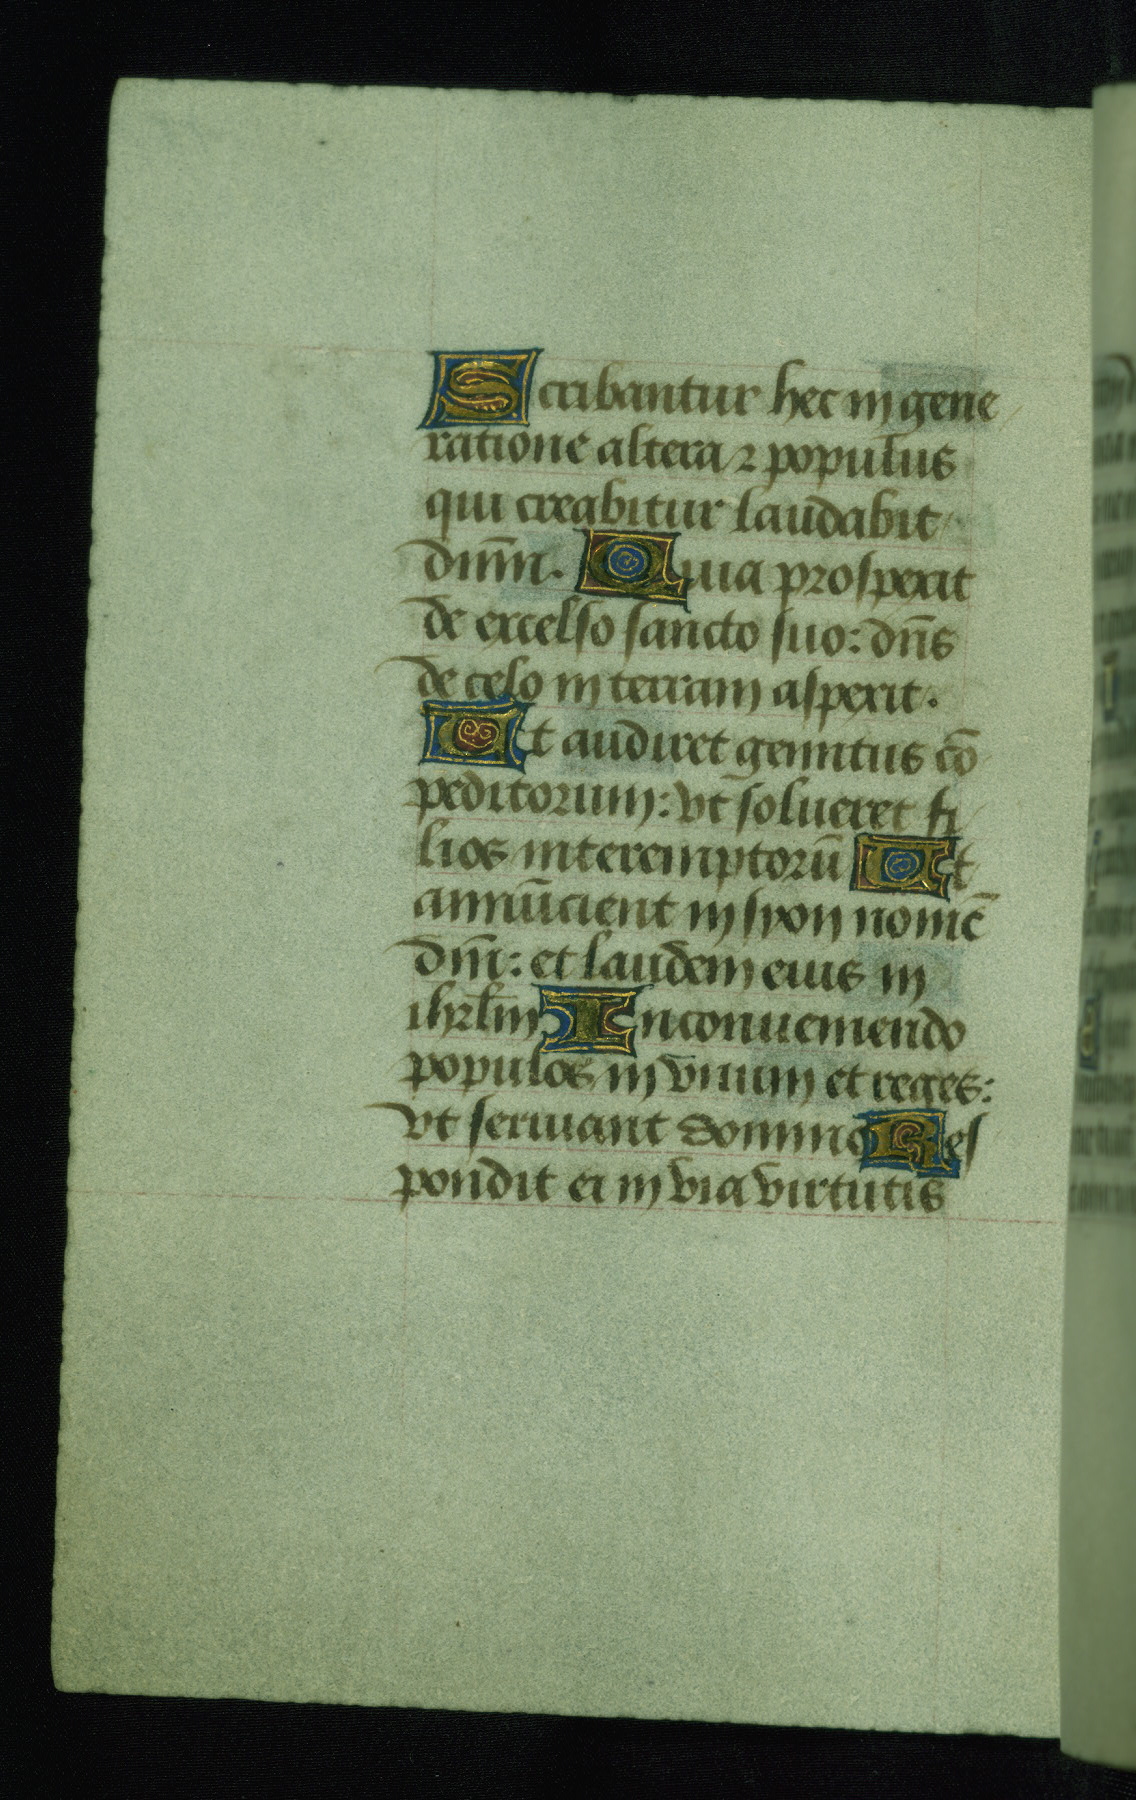 Scribantur hec in gene
ratione altera ⁊ populus
qui creabitur laudabit
dnm̄. Quia prospexit
de excelso sancto suo: dn̄s
de celo in terram aspexit.
Ut audiret gemitus cō
peditorum: vt solueret fi
lios interemptorū Ut
annūcient in syon nomē
dn̄i: et laudem eius in
ihrl̄m In conueniendo
populos in vnum et reges:
vt seruiant domino Res
pondit ei in via virtutis